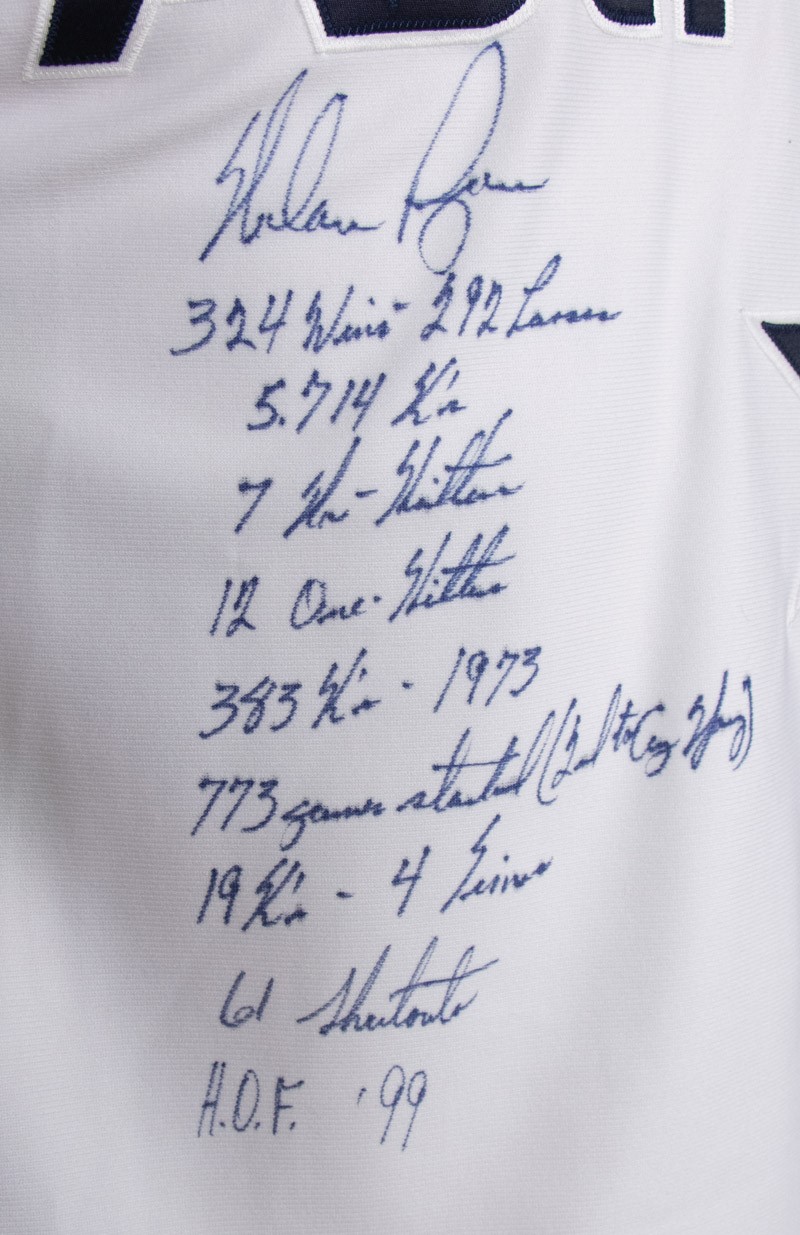 Nolan Ryan
324 Wins - 292 Losses
5.714 K's
7 No-Hitters
12 One-Hitters
383 K's - 1973
773 games started (2nd to Cy Young)
19 K's - 4 Times
61 Shutouts
H.O.F. '99